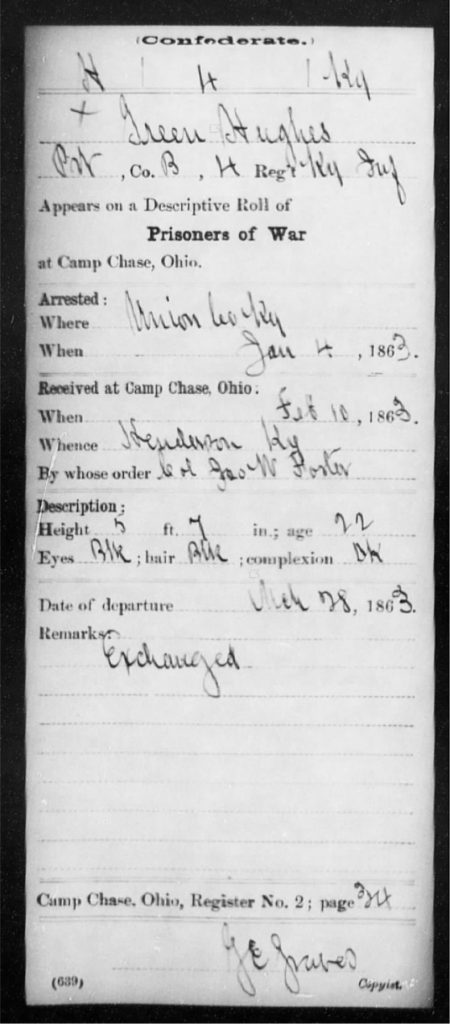 (Confederate.)
H | 4 | Ky
x Green Hughes
Pvt, Co. B, 4 Reg't Ky Inf
Appears on a Descriptive Roll of
Prisoners of War
at Camp Chase, Ohio.
Arrested:
Where Union Co Ky
When Jan 4, 1863.
Received at Camp Chase, Ohio:
When Feb 10, 1863.
Whence Henderson Ky
By whose order Col Jas W Foster
Description:
Height 5 ft. 7 in.; age 22
Eyes Blk; hair Blk; complexion Dk
Date of departure Mch 28, 1863.
Remarks:
Exchanged
Camp Chase, Ohio, Register No. 2; page 324
G E Graves
(639) Copyist.